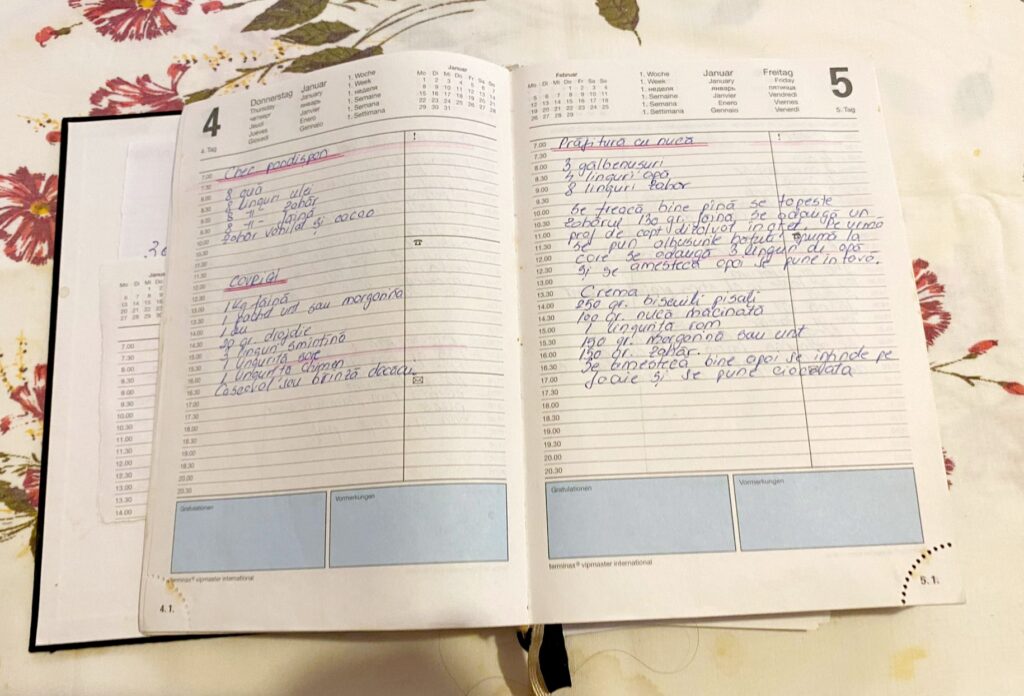 4
4. Tag
Donnerstag
Thursday
четверг
Jeudi
Jueves
Giovedì
Januar
January
январь
Janvier
Enero
Gennaio
1. Woche
1. Week
1. неделя
1. Semaine
1. Semana
1. Settimana
Januar
Mo Di Mi Do Fr Sa So
1 2 3 4 5 6 7
8 9 10 11 12 13 14
15 16 17 18 19 20 21
22 23 24 25 26 27 28
29 30 31
!
7.00 Chec pandispan
7.30
8.00 8 ouă
8.30 8 linguri ulei
9.00 8 -"- zahăr
9.30 8 -"- făină
10.00 zahăr vanilat și cacao
10.30
11.00
11.30
12.00 Covrigi
12.30
13.00 1 kg făină
13.30 1 pachet unt sau margarină
14.00 1 ou
14.30 20 gr. drojdie
15.00 3 linguri smîntînă
15.30 1 linguriță sare
16.00 1 linguriță chimen
16.30 Cașcaval sau brînză
17.00
17.30
18.00
18.30
19.00
19.30
20.00
20.30
Gratulationen
Vormerkungen
terminax® vipmaster international
4. 1.
Februar
Mo Di Mi Do Fr Sa So
1 2 3 4
5 6 7 8 9 10 11
12 13 14 15 16 17 18
19 20 21 22 23 24 25
26 27 28 29
1. Woche
1. Week
1. неделя
1. Semaine
1. Semana
1. Settimana
Januar
January
январь
Janvier
Enero
Gennaio
Freitag
Friday
пятница
Vendredi
Viernes
Venerdì
5
5. Tag
!
7.00 Prăjitura cu nucă
7.30
8.00 3 gălbenușuri
8.30 4 linguri apă
9.00 8 linguri zahăr
9.30
10.00 Se freacă bine pînă se topește
10.30 zahărul 130 gr. făină se adaugă un
11.00 praf de copt dizolvat în
11.30 se pun albușurile bătute spumă la
12.00 care se adaugă 3 linguri de apă
12.30 și se amestecă apoi se pune în tavă.
13.00
13.30 Crema
14.00 250 gr. biscuiți pisați
14.30 100 gr. nucă măcinată
15.00 1 linguriță rom
15.30 150 gr. margarină sau unt
16.00 150 gr. zahăr.
16.30 Se amestecă bine apoi se întinde pe
17.00 foaie și se pune ciocolata
17.30
18.00
18.30
19.00
19.30
20.00
20.30
Gratulationen
Vormerkungen
terminax® vipmaster international
5. 1.